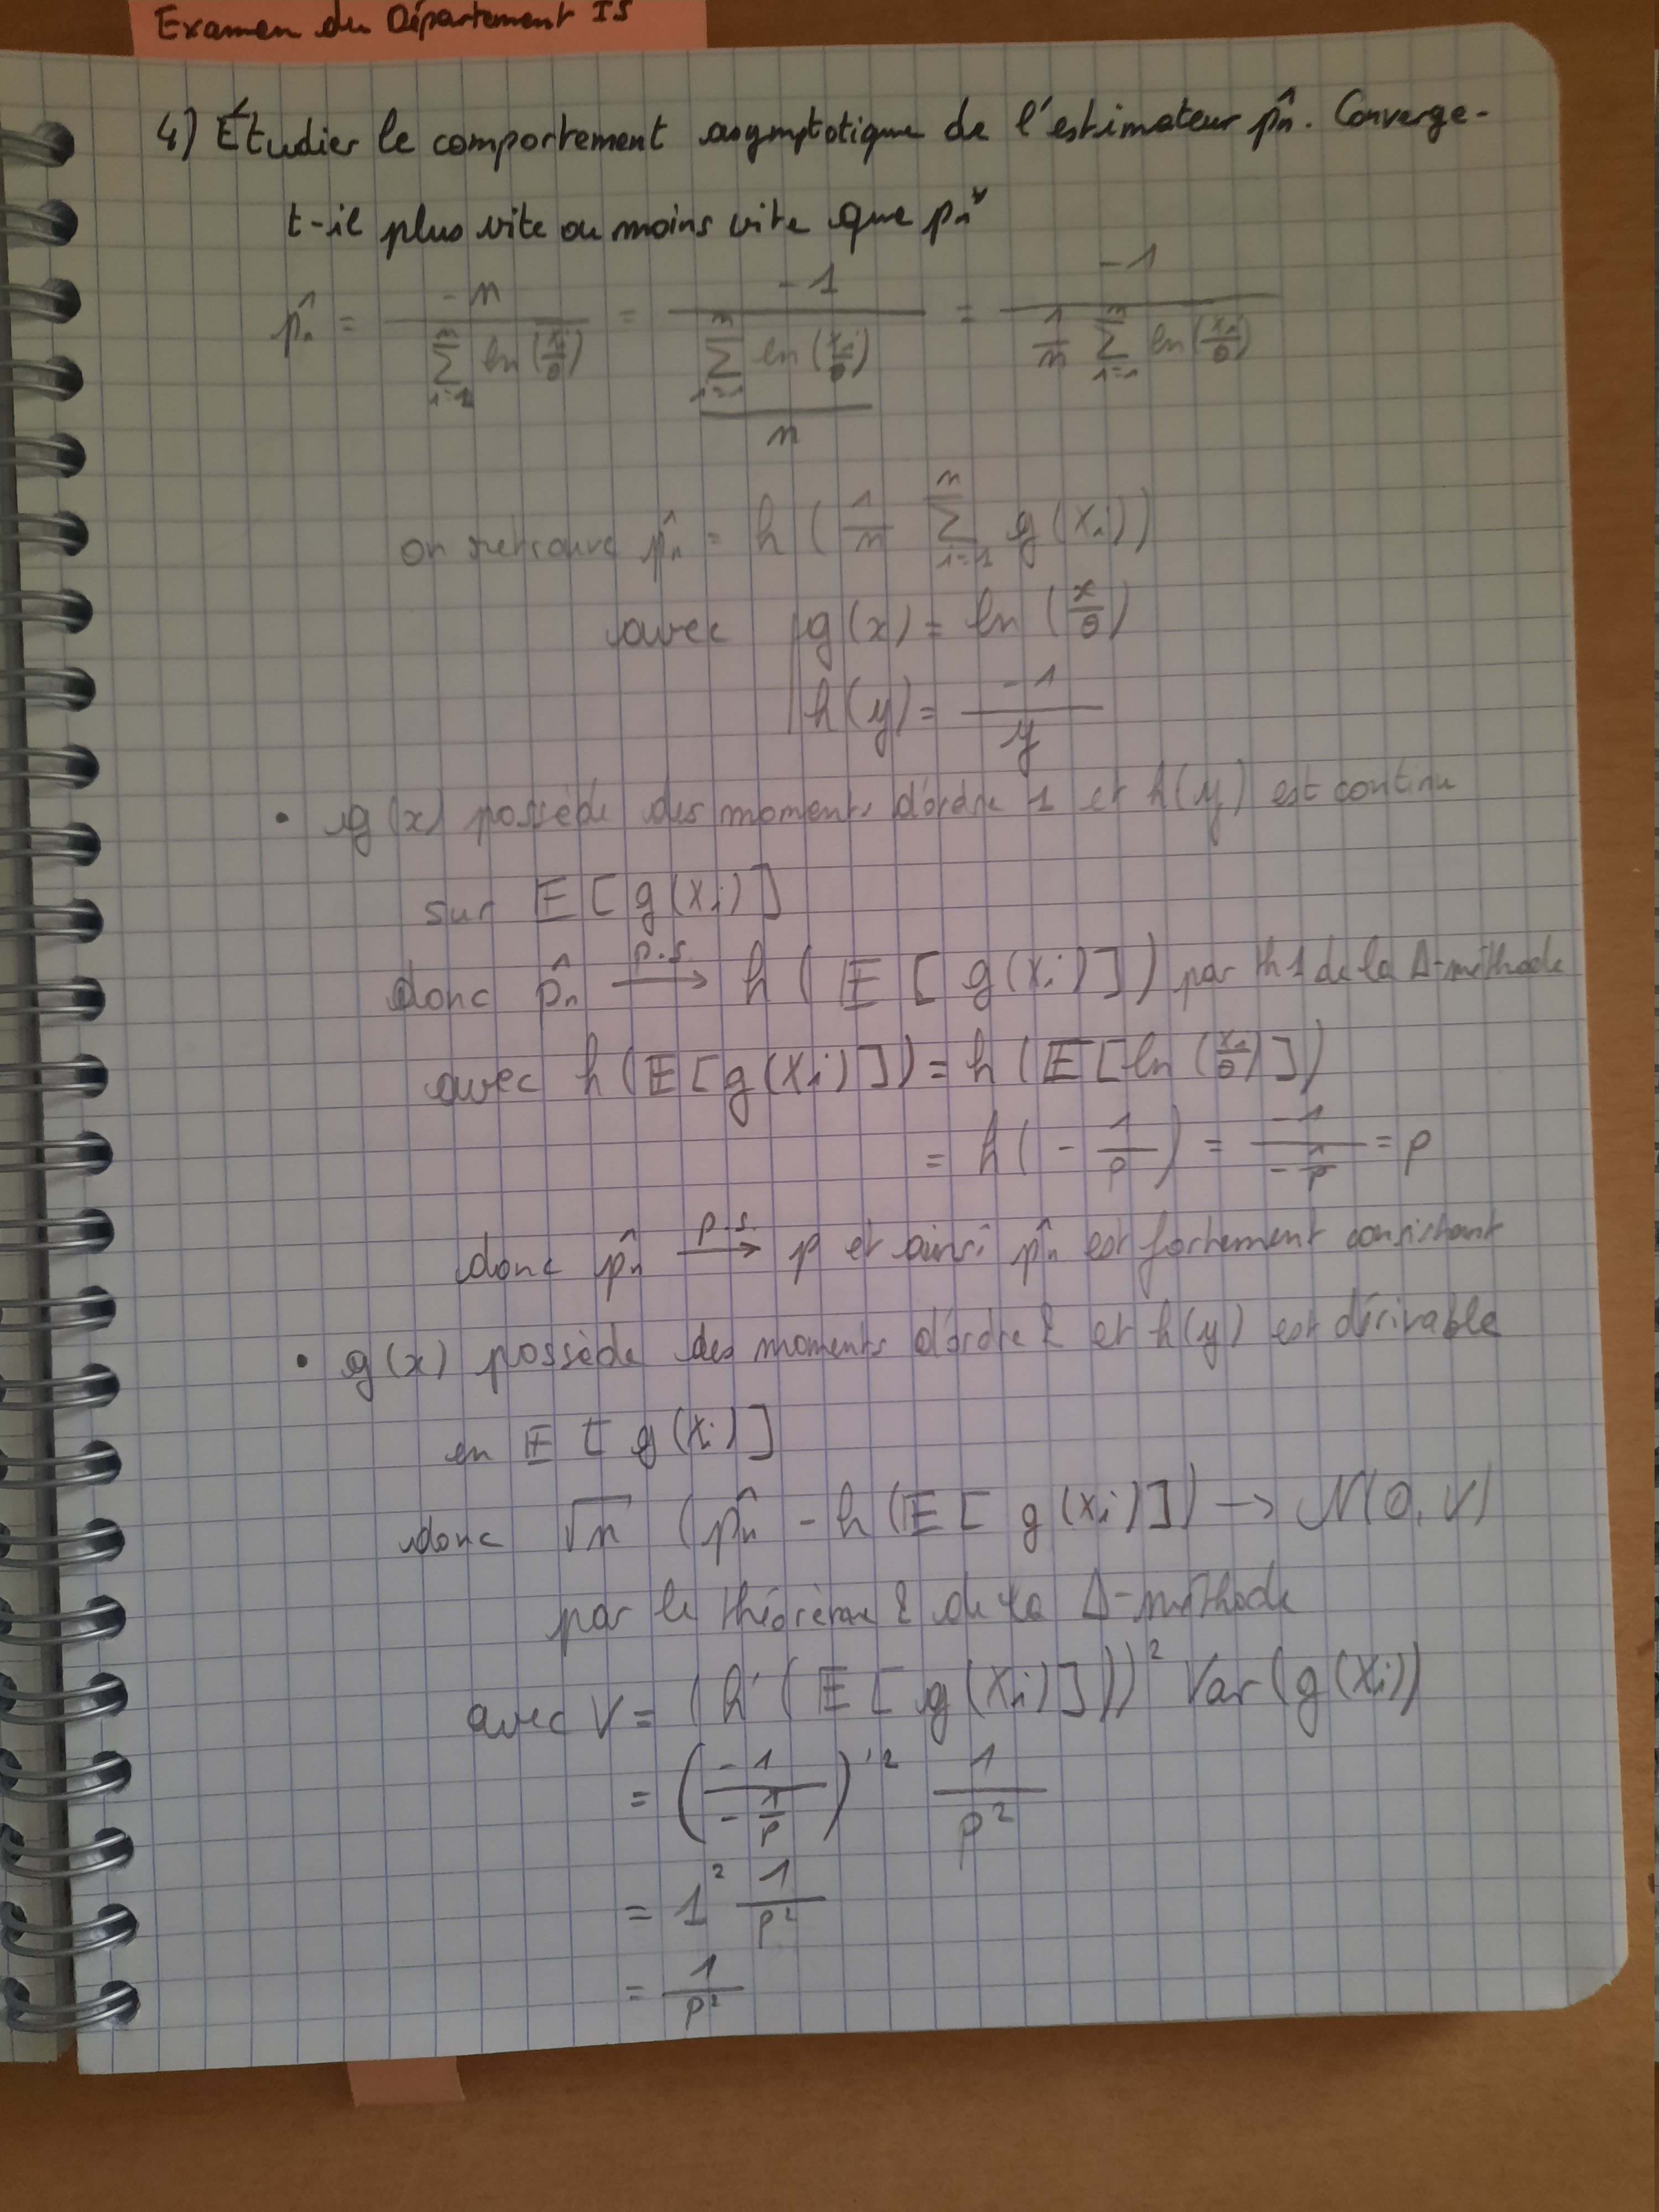 Examen du Département IS
4) Étudier le comportement asymptotique de l'estimateur p̂n. Converge-
t-il plus vite ou moins vite que p̌n
p̂n = -n / Σ_{i=1}^{n} ln(Xi/θ) = -1 / ((Σ_{i=1}^{n} ln(Xi/θ)) / n) = -1 / (1/n Σ_{i=1}^{n} ln(Xi/θ))
on retrouve p̂n = h(1/n Σ_{i=1}^{n} g(Xi))
avec g(x) = ln(x/θ)
h(y) = -1/y
• g(x) possède des moments d'ordre 1 et h(y) est continu
sur E[g(Xi)]
donc p̂n →^{p.s.} h(E[g(Xi)]) par th 1 de la Δ-méthode
avec h(E[g(Xi)]) = h(E[ln(Xi/θ)])
= h(-1/p) = -1/(-1/p) = p
donc p̂n →^{p.s.} p et ainsi p̂n est fortement consistant
• g(x) possède des moments d'ordre 2 et h(y) est dérivable
en E[g(Xi)]
donc √n (p̂n - h(E[g(Xi)]) → N(0, V)
par le théorème 2 de la Δ-méthode
avec V = (h'(E[g(Xi)]))² Var(g(Xi))
= (-1/(-1/p))'² 1/p²
= 1² 1/p²
= 1/p²